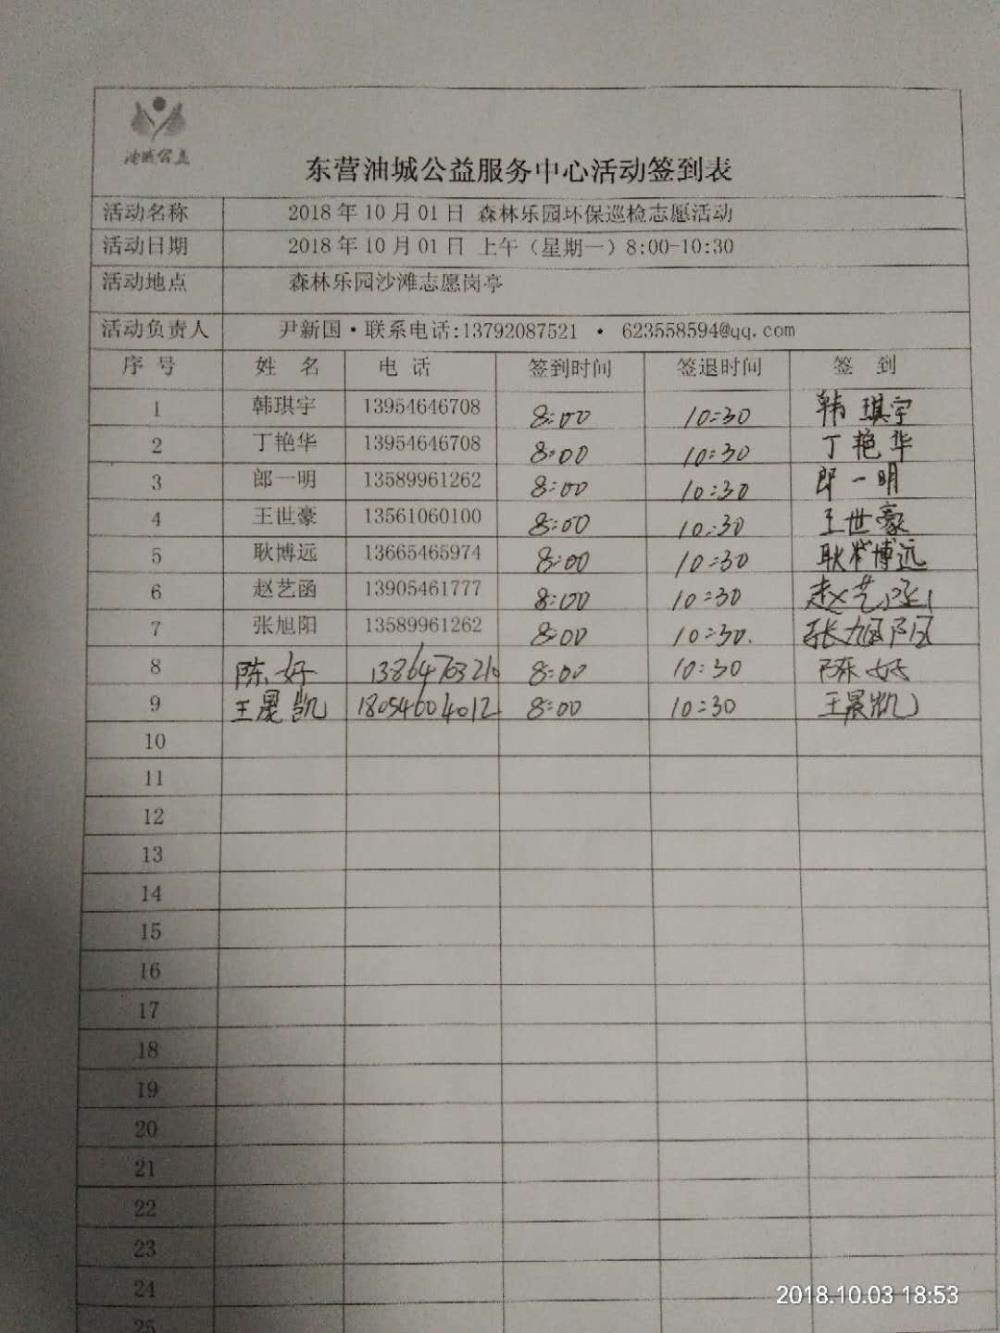 油城公益
东营油城公益服务中心活动签到表
活动名称 2018年10月01日 森林乐园环保巡检志愿活动
活动日期 2018年10月01日 上午（星期一）8:00-10:30
活动地点 森林乐园沙滩志愿岗亭
活动负责人 尹新国·联系电话:13792087521 · 623558594@qq.com
序号 姓名 电话 签到时间 签退时间 签到
1 韩琪宇 13954646708 8:00 10:30 韩琪宇
2 丁艳华 13954646708 8:00 10:30 丁艳华
3 郎一明 13589961262 8:00 10:30 郎一明
4 王世豪 13561060100 8:00 10:30 王世豪
5 耿博远 13665465974 8:00 10:30 耿博远
6 赵艺函 13905461777 8:00 10:30 赵艺函
7 张旭阳 13589961262 8:00 10:30. 张旭阳
8 陈好 13864703210 8:00 10:30 陈好
9 王晟凯 18054604012 8:00 10:30 王晟凯
10
11
12
13
14
15
16
17
18
19
20
21
22
23
24
25
2018.10.03 18:53